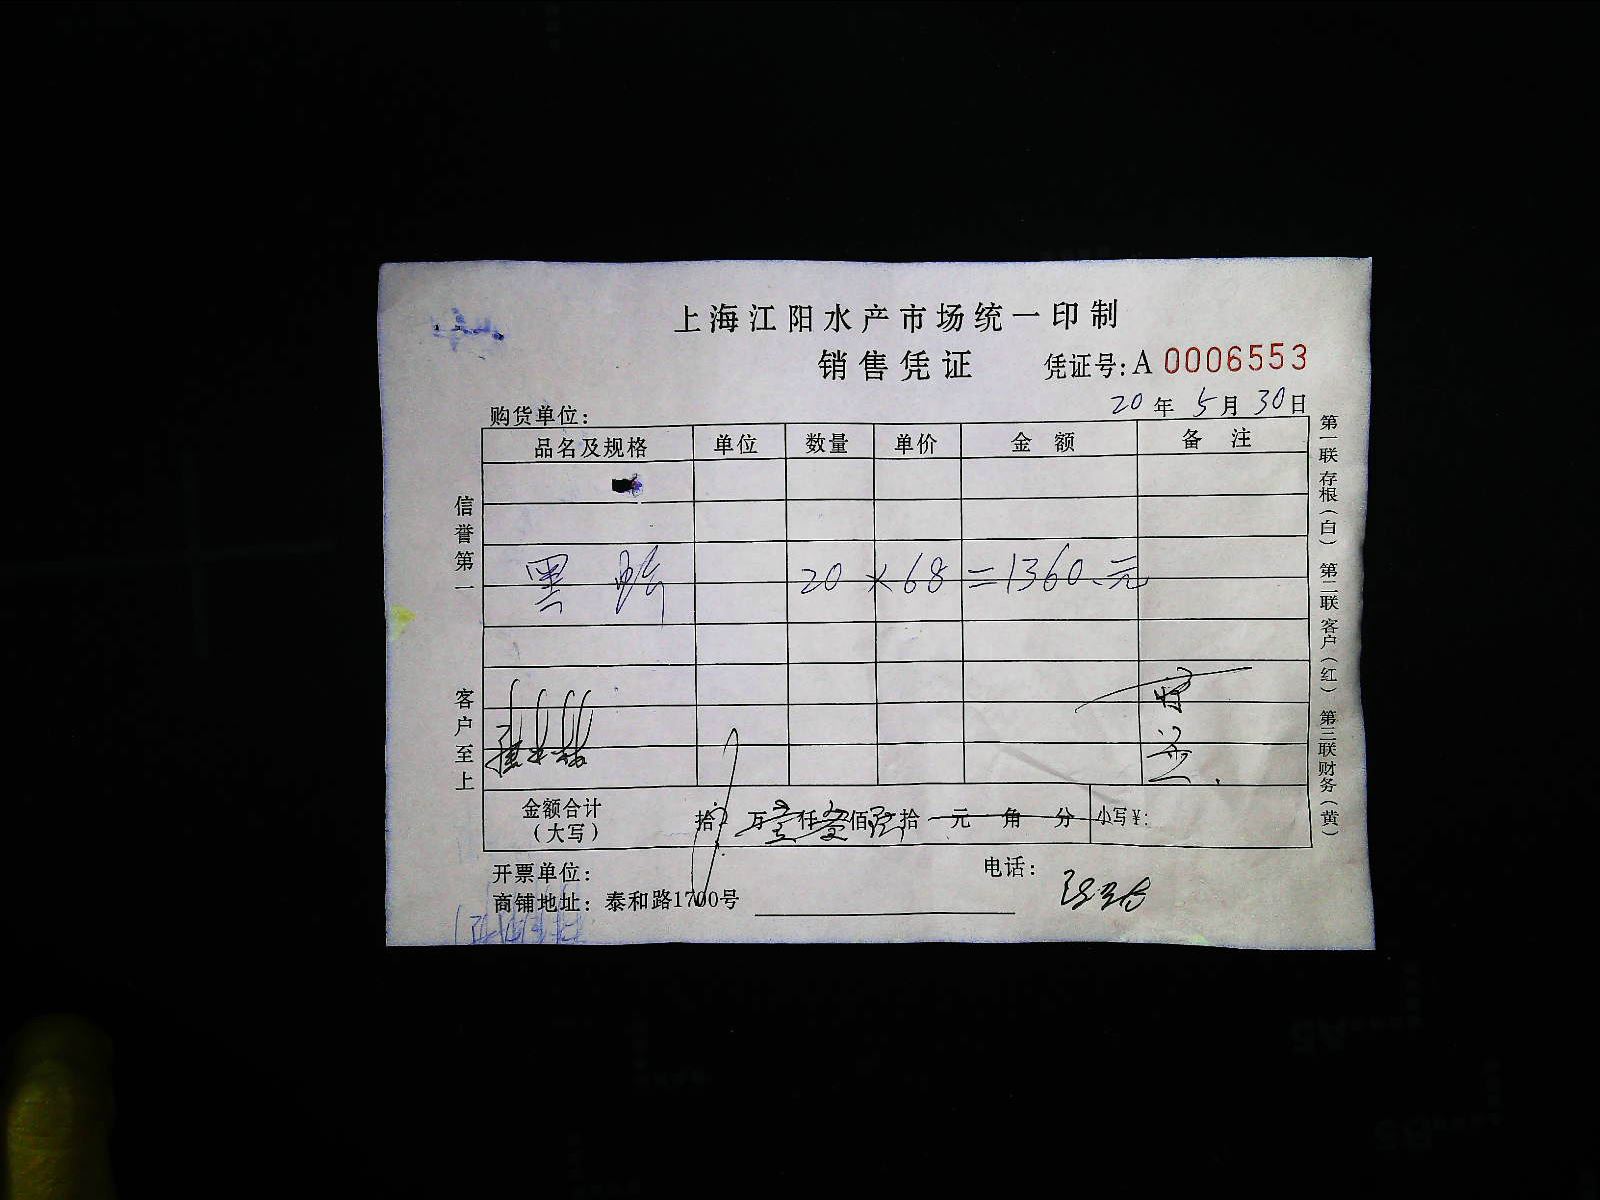 上海江阳水产市场统一印制
销售凭证 凭证号: A 0006553
购货单位: 20年 5月 30日
品名及规格 单位 数量 单价 金额 备注
黑 20 × 68 = 1360.元
金额合计(大写) 拾 万壹仟叁佰陆拾 元 角 分 小写¥:
开票单位: 电话:
商铺地址: 泰和路1700号
信誉第一 客户至上
第一联存根(白) 第二联客户(红) 第三联财务(黄)